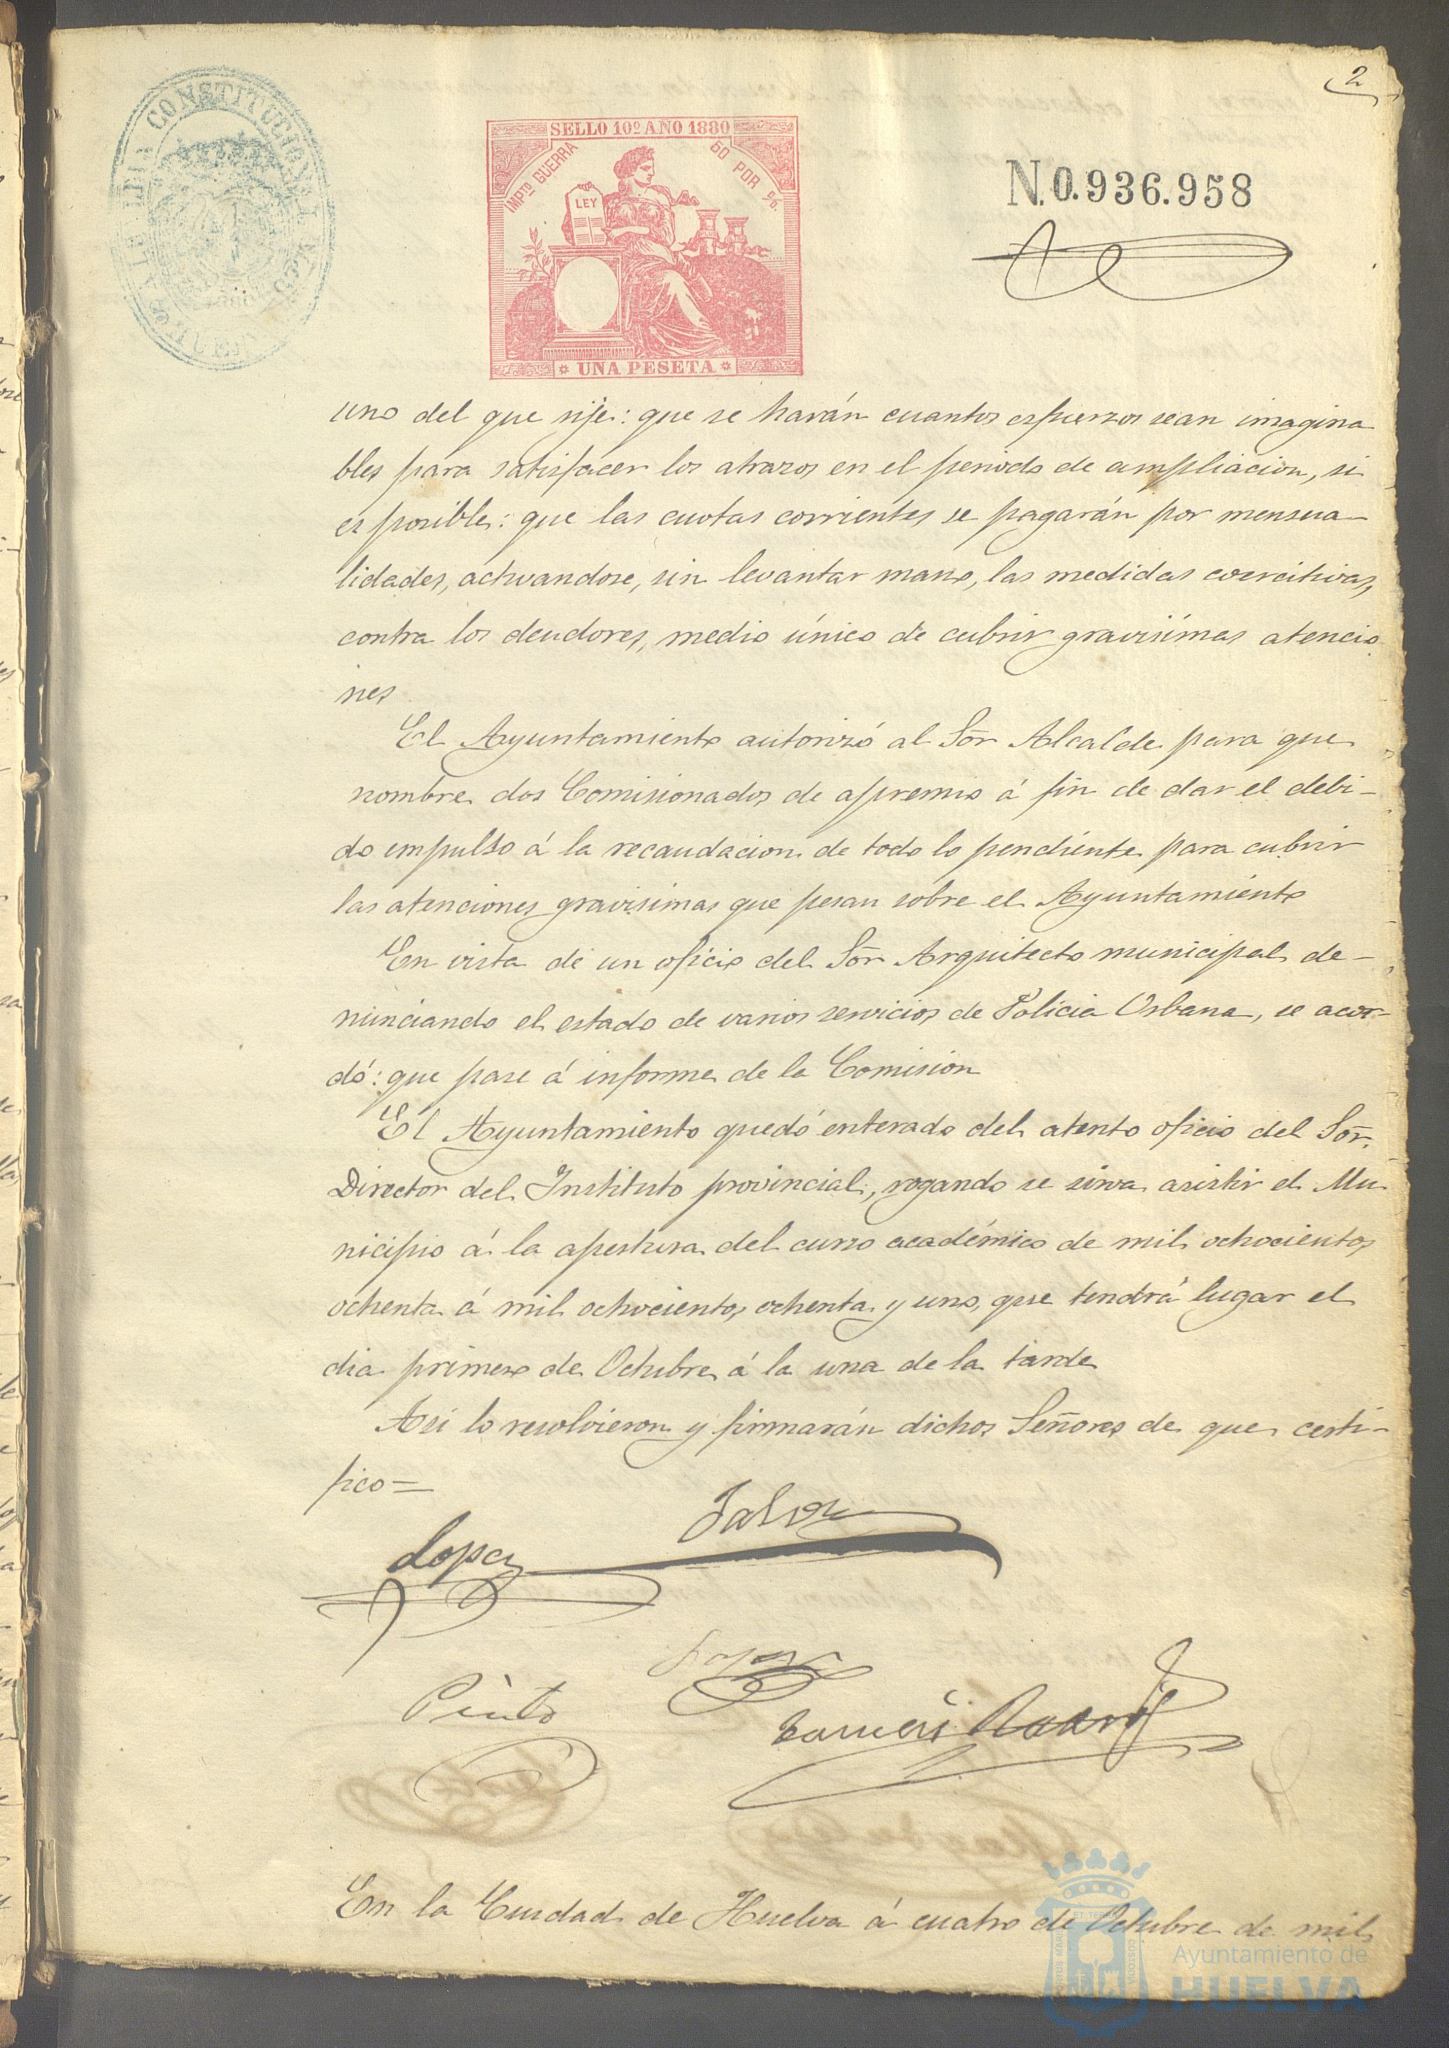 2
ALCALDIA CONSTITUCIONAL DE HUELVA
SELLO 10º AÑO 1880
IMPTO GUERRA
50 POR %.
LEY
UNA PESETA
N.0.936.958
uno del que rije: que se harán cuantos esfuerzos sean imagina
bles para satisfacer los atrazos en el periodo de ampliacion, si
es posible: que las cuotas corrientes se pagarán por mensua-
lidades, activandose, sin levantar mano, las medidas coercitivas,
contra los deudores, medio único de cubrir gravisímas atencio
nes
El Ayuntamiento autorizó al Sor Alcalde para que
nombre dos Comisionados de apremio á fin de dar el debi-
do impulso á la recaudacion de todo lo pendiente para cubrir
las atenciones gravisimas que pesan sobre el Ayuntamiento
En vista de un oficio del Sor Arquitecto municipal de-
nunciando el estado de varios servicios de Policia Urbana, se acor-
dó: que pase á informe de la Comision
El Ayuntamiento quedó enterado del atento oficio del Sor.
Director del Instituto provincial, rogando se sirva asistir el Mu-
nicipio á la apertura del curso académico de mil ochocientos
ochenta á mil ochocientos ochenta y uno, que tendrá lugar el
dia primero de Octubre á la una de la tarde
Asi lo resolvieron y firmarán dichos Señores de que certi-
fico=
Lopez
Pinto
En la Ciudad de Huelva á cuatro de Octubre de mil
Ayuntamiento de
HUELVA